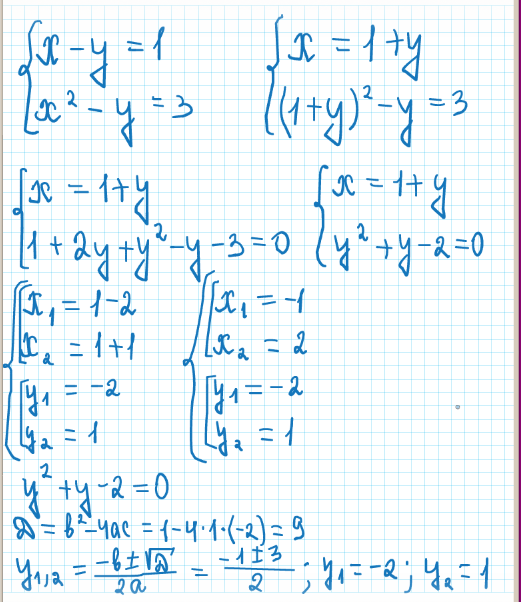 { x − y = 1
x² − y = 3
{ x = 1+y
(1+y)² − y = 3
{ x = 1+y
1 + 2y + y² − y − 3 = 0
{ x = 1+y
y² + y − 2 = 0
{ [ x₁ = 1−2
x₂ = 1+1
[ y₁ = −2
y₂ = 1
{ [ x₁ = −1
x₂ = 2
[ y₁ = −2
y₂ = 1
y² + y − 2 = 0
D = b² − 4ac = 1 − 4·1·(−2) = 9
y₁,₂ = (−b ± √D)/2a = (−1 ± 3)/2 ; y₁ = −2 ; y₂ = 1